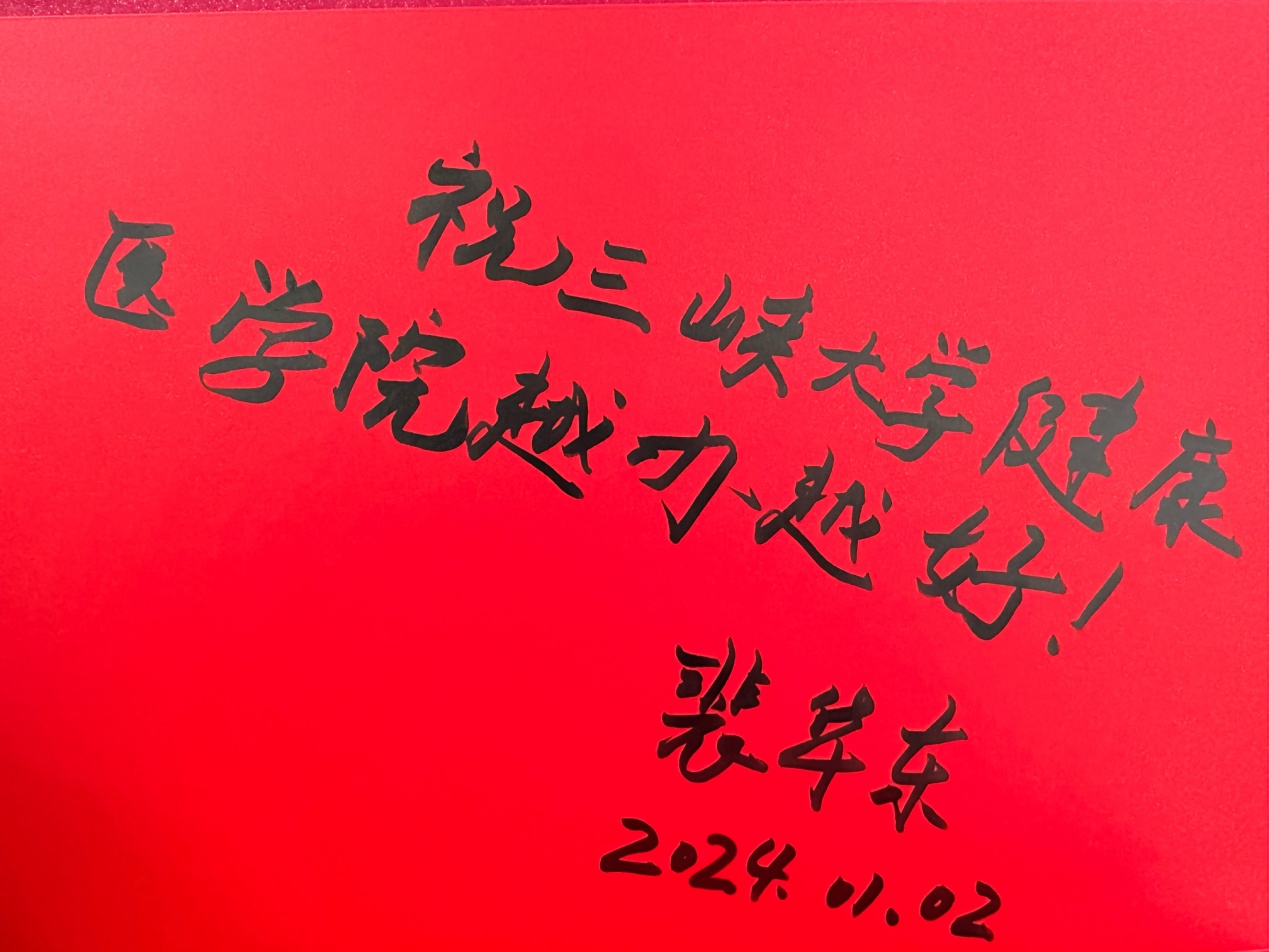 祝三峡大学健康
医学院越办越好!
裴华东
2024.01.02